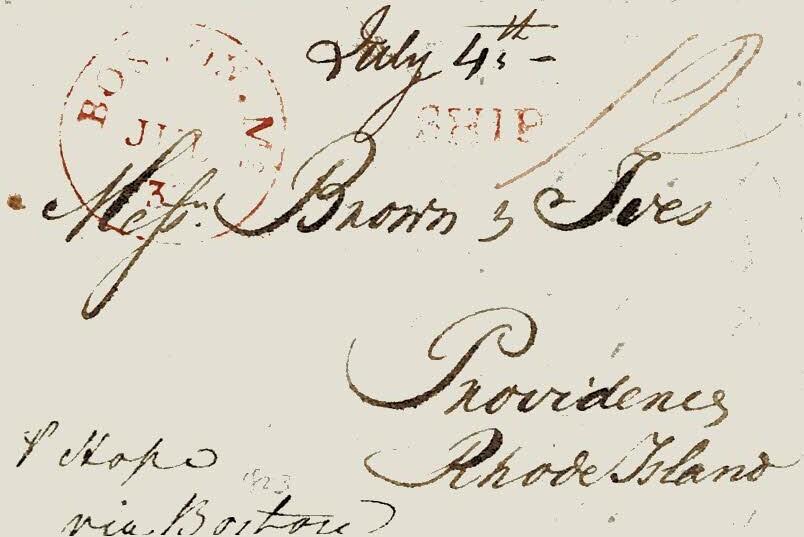 July 4th -
BOSTON. MS
JUL
3
SHIP
Messrs. Brown & Ives
Providence
Rhode Island
p Hope
1823
via Boston